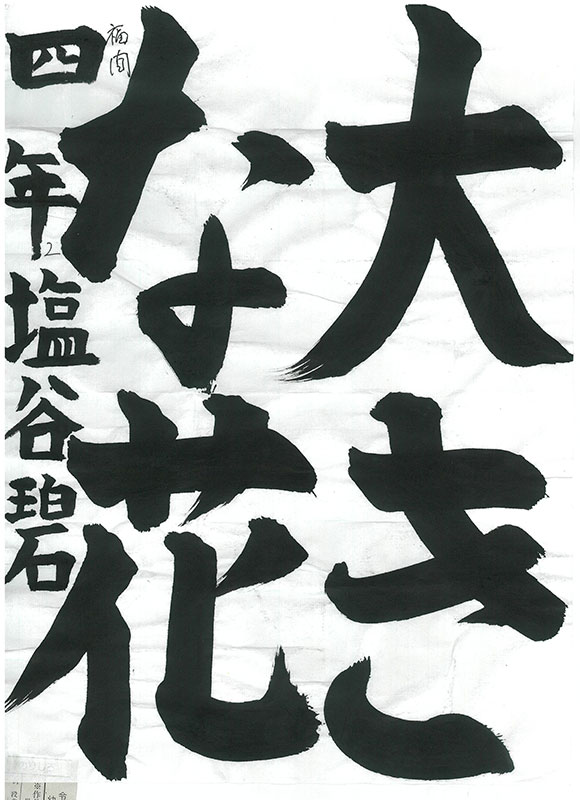 大き
な花
四年塩谷碧
福岡
2